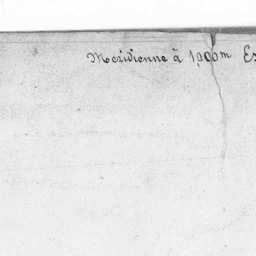 Meridienne à 1,000m